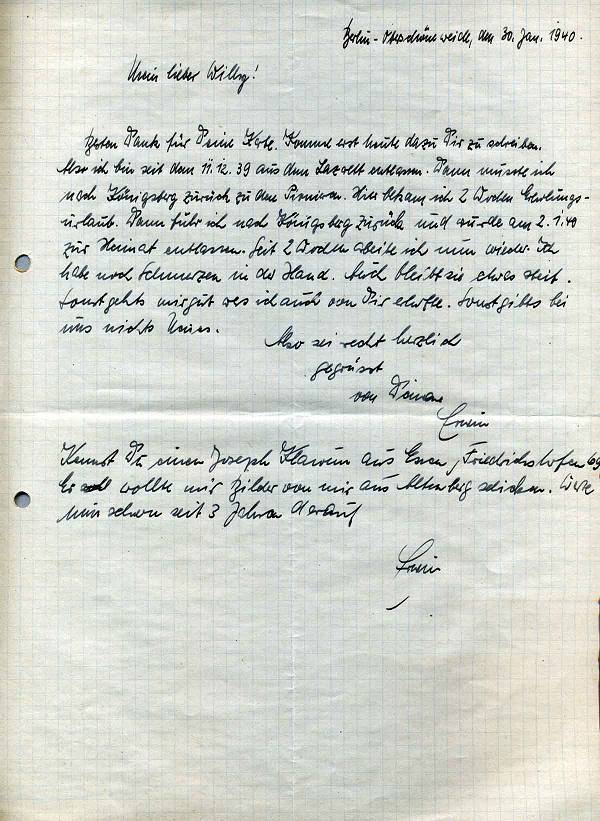 Berlin-Oberschöneweide, den 30. Jan. 1940.
Mein lieber Willy!
Besten Dank für Deine Karte. Komme erst heute dazu Dir zu schreiben.
Also ich bin seit dem 11.12.39 aus dem Lazarett entlassen. Dann musste ich
nach Königsberg zurück zu den Pionieren. Hier bekam ich 2 Wochen Erholungs-
urlaub. Dann fuhr ich nach Königsberg zurück und wurde am 2.1.40
zur Heimat entlassen. Seit 2 Wochen arbeite ich nun wieder. Ich
habe noch Schmerzen in der Hand. Auch bleibt sie etwas steif.
Sonst gehts mir gut was ich auch von Dir ehoffe. Sonst gibts bei
uns nichts Neues.
Also sei recht herzlich
gegrüsst
von Deinem
Erwin
Kennst Du einen Joseph aus Essen, Friedrichshofen 69
Er wollte mir Bilder von mir aus Altenberg schicken. Warte
nun schon seit 3 Jahren darauf
Erwin